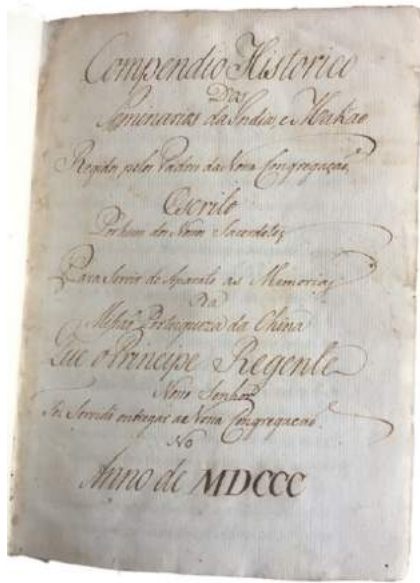 Compendio Historico
Dos
Seminarios da India, e Makao
Regidos pelos Padres da Nossa Congregação,
Escrito
Por hum dos Nossos Sacerdotes
Para servir de Aparato as Memorias
Da
Missaõ Portugueza da China
Que o Principe Regente
Nosso Senhor
foi Servido entregar aa Nossa Congregacaõ
No
Anno de MDCCC